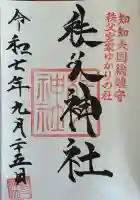 知知夫国総鎮守
秩父宮家ゆかりの社
秩父神社
令和七年九月二十五日